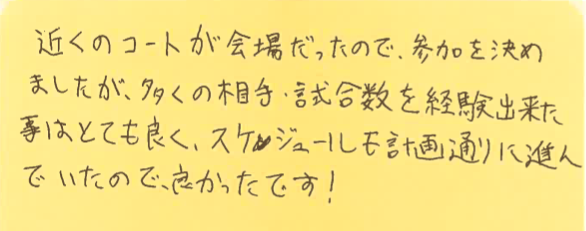 近くのコートが会場だったので、参加を決め
ましたが、多くの相手・試合数を経験出来た
事はとても良く、スケジュールも計画通りに進ん
でいたので、良かったです!